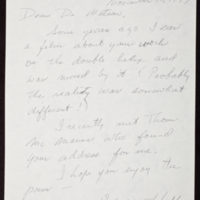 Dear Dr. Watson,
Some years ago I saw
a film about your work
on the double helix and
was moved by it (Probably
the reality was somewhat
different!)
I recently met Thom
who found
your address for me.
I hope you enjoy the
poem —